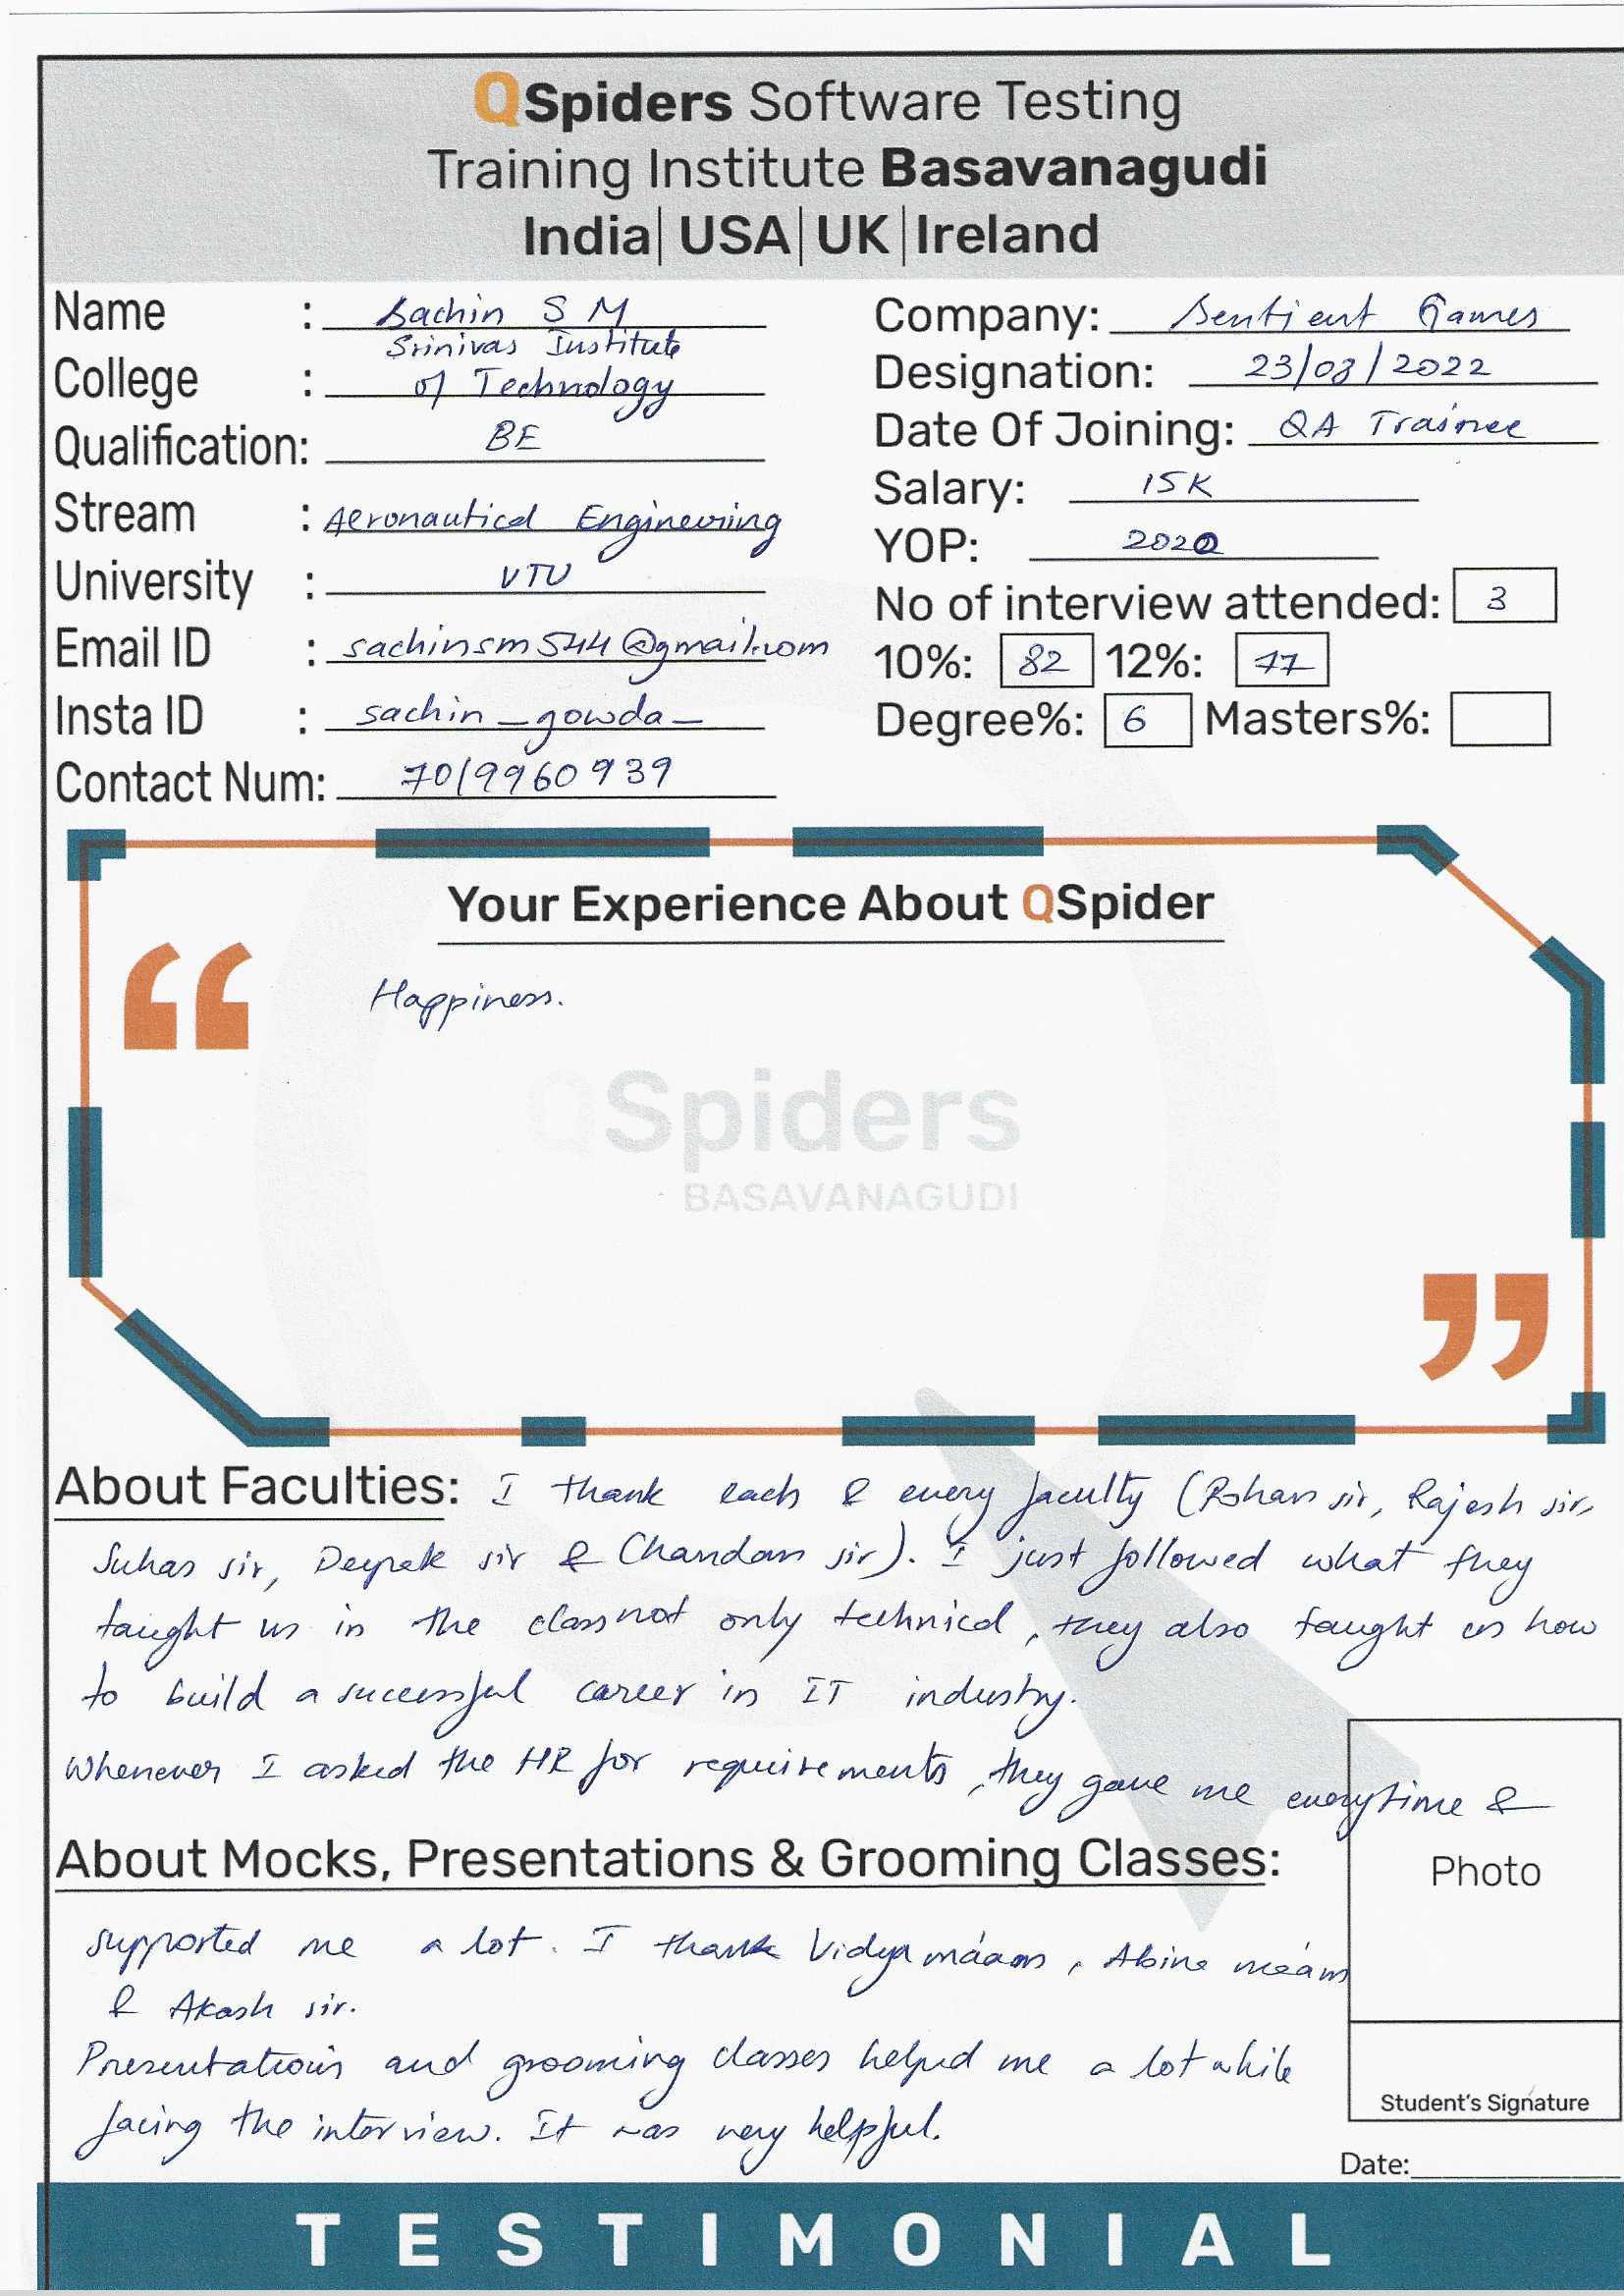 QSpiders Software Testing
Training Institute Basavanagudi
India| USA| UK |Ireland
Name : Sachin S M
College : Srinivas Institute
of Technology
Qualification: BE
Stream : Aeronautical Engineering
University : VTU
Email ID : sachinsm544@gmail.com
Insta ID : sachin_gowda_
Contact Num: 7019960939
Company: Sentient Games
Designation: 23/08/2022
Date Of Joining: QA Trainee
Salary: 15K
YOP: 2020
No of interview attended: 3
10%: 82 12%: 77
Degree%: 6 Masters%:
Your Experience About QSpider
Happiness.
QSpiders
BASAVANAGUDI
About Faculties: I thank each & every faculty (Rohan sir, Rajesh sir,
Suhas sir, Deepak sir & Chandan sir). I just followed what they
taught us in the class not only technical, they also taught us how
to build a successful career in IT industry.
Whenever I asked the HR for requirements, they gave me everytime &
About Mocks, Presentations & Grooming Classes:
supported me a lot. I thank Vidya ma'am, Abina ma'am
& Akash sir.
Presentations and grooming classes helped me a lot while
facing the interview. It was very helpful.
Photo
Student's Signature
Date:
TESTIMONIAL